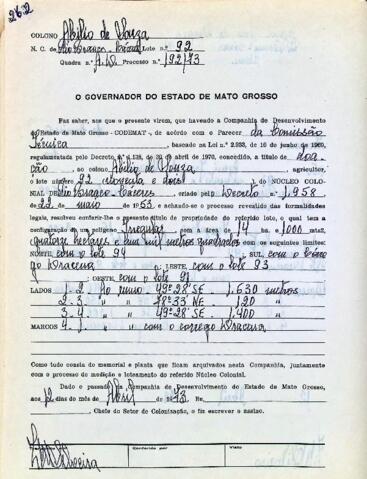 COLONO Abilio de Souza
N. C. de Rio Branco - Cáceres Lote n.º 92
Quadra n.º A.D. Processo n.º 192/73
O GOVERNADOR DO ESTADO DE MATO GROSSO
Faz saber, aos que o presente virem, que havendo a Companhia de Desenvolvimento
do Estado de Mato Grosso - CODEMAT, de acôrdo com o Parecer da Comissão
Técnica, bascado na Lei n.º 2.933, de 16 de junho de 1969,
regulamentada pelo Decreto n.º 1.138, de 30 de abril de 1970, concedido, a titulo de doa-
ção ao colono Abilio de Souza, agricultor,
o lote número 92 noventa e dois do NÚCLEO COLO-
NIAL de Rio Branco - Cáceres, criado pelo Decreto n.º 1.958
de 22 de maio de 1953, e achando-se o processo revestido das formalidades
legais, resolveu conferir-lhe o presente título de propriedade do referido lote, o qual tem a
configuração de um polígono Irregular com a área de 14 ha. e 1000 metros
quatorze hectares e um mil metros quadrados com os seguintes limites:
NORTE, com o lote 94, SUL, com o Córre
go Dracena; LESTE, com o lote 93
; OESTE, com o lote 91
LADOS 1. 2. Ao rumo 49º28'SE. 1.630 metros
2. 3. " " 78º33'NE. 120 "
3. 4. " " 49º28'SE. 1.400 "
MARCOS 4. 1. " " com o corrego Dracena
Como tudo consta do memorial e planta que ficam arquivados nesta Companhia, juntamente
com o processo de medição e loteamento do referido Núcleo Colonial.
Dado e passado na Companhia de Desenvolvimento do Estado de Mato Grosso,
aos 12 dias do mês de Abril de 1973. Eu,
, Chefe do Setor de Colonização, o fiz escrever e assino.
Conferido por
Visto